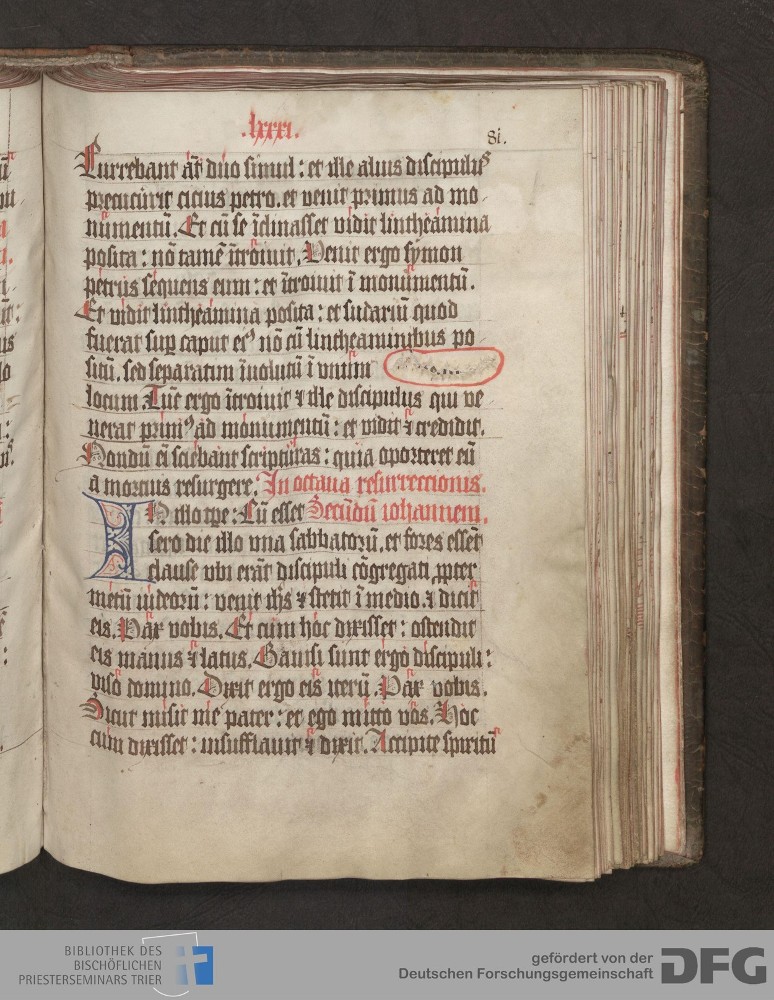 .lxxxi.
81.
Currebant āt duo simul : et ille alius discipulꝰ
precucurit cicius petro. et venit primus ad mo
numentū. Et cū se īclinasset vidit lintheamina
posita : nō tamē ītroiuit. Venit ergo symon
petrus sequens eum : et ītroiuit ī monumentū.
Et vidit lintheamina posita : et sudariū quod
fuerat sup̲ caput eiꝰ nō cū lintheaminibus po
sitū. sed separatim īuolutū ī vnum
locum. Tūc ergo ītroiuit ⁊ ille discipulus qui ve
nerat primꝰ ad monumentū : et vidit ⁊ credidit.
Nondū eī sciebant scripturas : quia oporteret eū
a mortuis resurgere. In octaua resurrectionis.
IN illo tp̄e : Cū esset Secūdū iohannem.
sero die illo vna sabbatorū. et fores essēt
clause vbi erāt discipuli cōgregati ꝓpter
metū iudeorū : venit ih̄s ⁊ stetit ī medio. ⁊ dicit
eis. Pax vobis. Et cum hoc dixisset : ostendit
eis manus ⁊ latus. Gauisi sunt ergo discipuli :
viso domino. Dixit ergo eis iterū. Pax vobis.
Sicut misit me pater : et ego mitto vos. Hoc
cum dixisset : insufflauit ⁊ dixit. Accipite spiritū
BIBLIOTHEK DES
BISCHÖFLICHEN
PRIESTERSEMINARS TRIER
gefördert von der
Deutschen Forschungsgemeinschaft
DFG